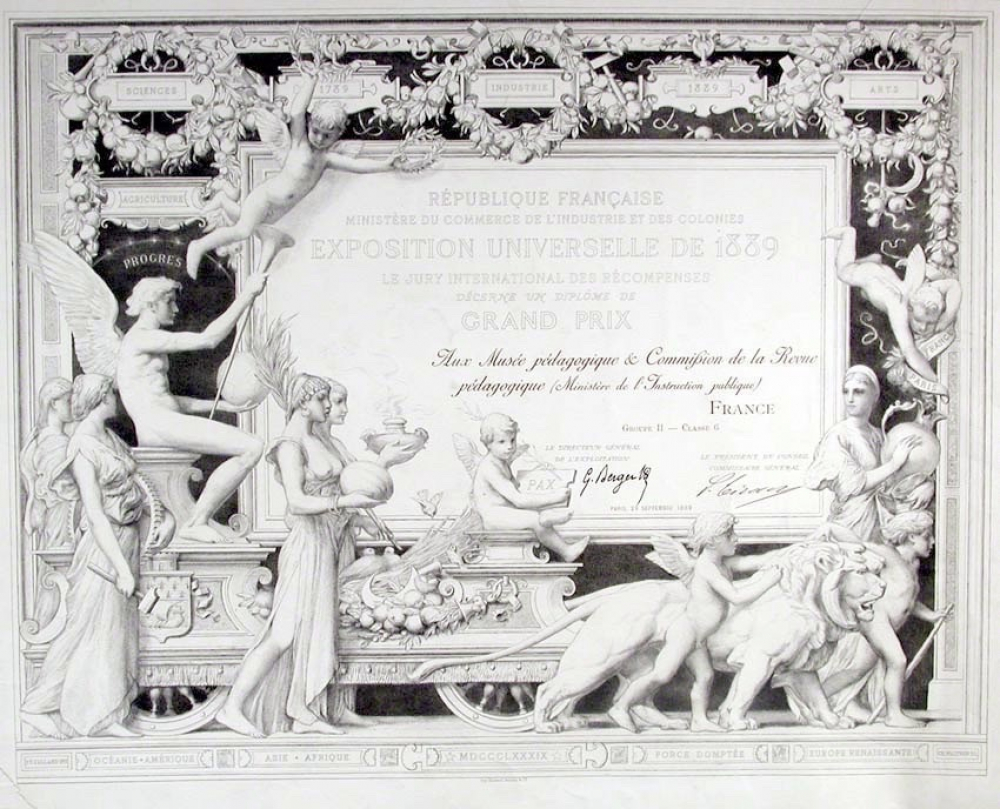 SCIENCES
1789
INDUSTRIE
1889
ARTS
AGRICULTURE
PROGRES
RÉPUBLIQUE FRANÇAISE
MINISTÈRE DU COMMERCE DE L'INDUSTRIE ET DES COLONIES
EXPOSITION UNIVERSELLE DE 1889
LE JURY INTERNATIONAL DES RÉCOMPENSES
DÉCERNE UN DIPLÔME DE
GRAND PRIX
Aux Musée pédagogique & Commißion de la Revue
pédagogique (Ministère de l'Instruction publique)
FRANCE
GROUPE II — CLASSE 6
LE DIRECTEUR GÉNÉRAL
DE L'EXPLOITATION
LE PRÉSIDENT DU CONSEIL
COMMISSAIRE GÉNÉRAL
PAX
G. Berger
PARIS 29 SEPTEMBRE 1889
FRANCE
PARIS
OCÉANIE • AMÉRIQUE
ASIE • AFRIQUE
MDCCCLXXXIX
FORCE DOMPTÉE
EUROPE RENAISSANTE